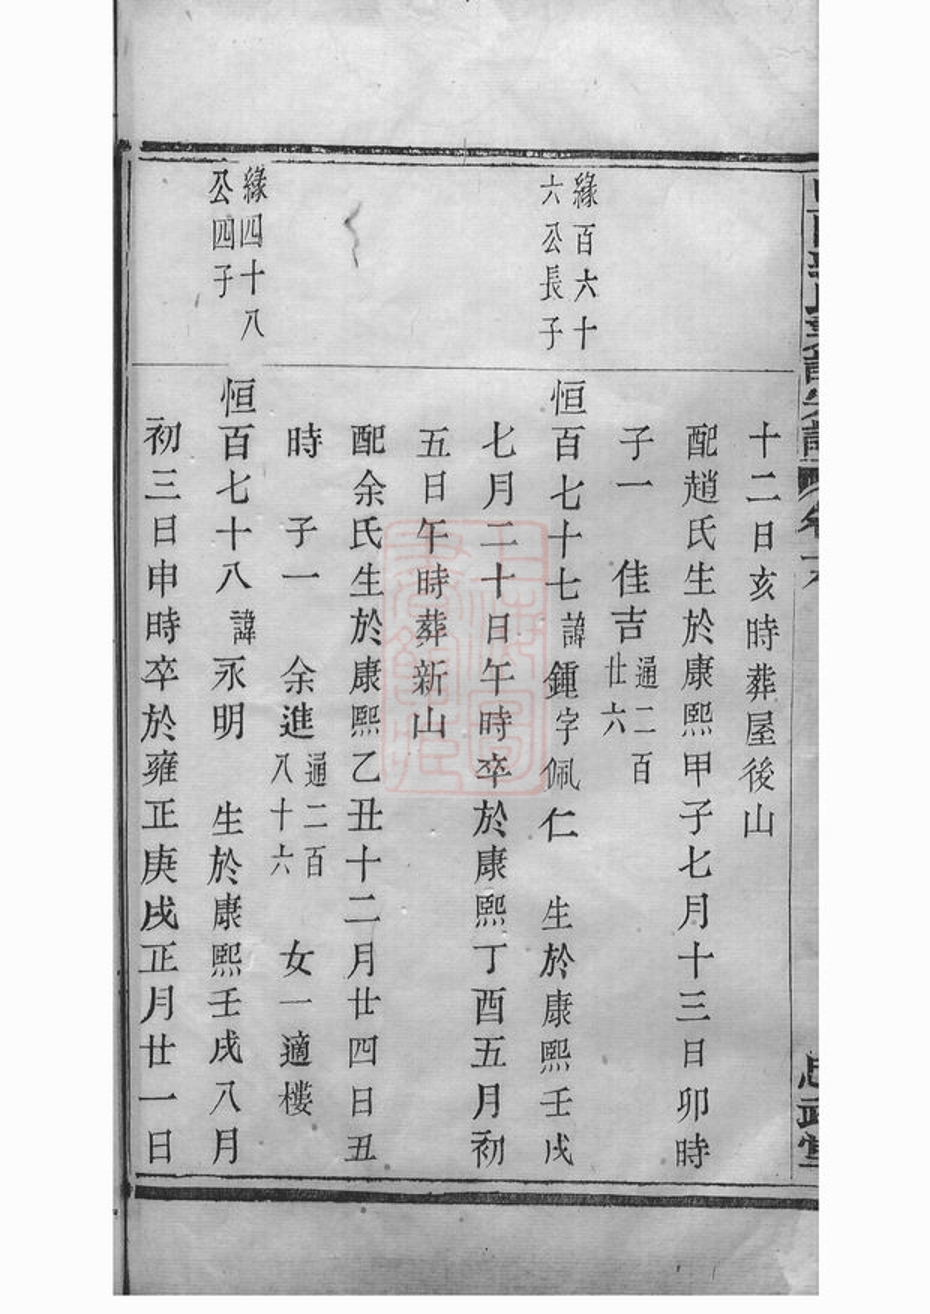 十二日亥時葬屋後山
配趙氏生於康熙甲子七月十三日卯時
子一 佳吉 通二百廿六
緣百六十
六公長子
恒百七十七諱鍾字佩仁 生於康熙壬戌
七月二十日午時卒於康熙丁酉五月初
五日午時葬新山
配余氏生於康熙乙丑十二月廿四日丑
時 子一 余進 通二百八十六 女一適樓
緣四十八
公四子
恒百七十八諱永明 生於康熙壬戌八月
初三日申時卒於雍正庚戌正月廿一日